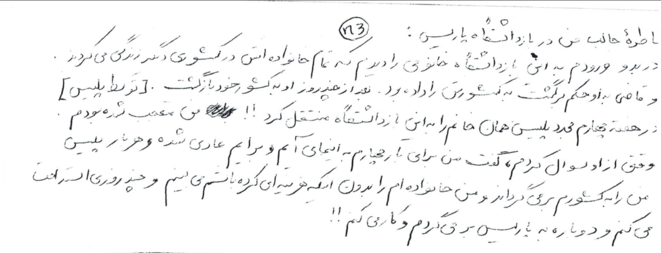 n3
خاطرهٔ جالب من در بازداشتگاه پاریس :
در بدو ورودم به این بازداشتگاه خانومی را دیدم که تمام خانواده اش در کشوری دیگر زندگی می کردند .
و قاضی به او حکم برگشت به کشورش را داده بود . بعد از چند روز او به کشور خود بازگشت . [توسط پلیس]
در هفته چهارم مجدد پلیس همان خانم را به این بازداشتگاه منتقل کرد !! من متعجب شده بودم .
وقتی از او سوال کردم ، گفت من برای بار چهارم به اینجا می آیم و برایم عادی شده و هر بار پلیس
من را به کشورم برمی گرداند و من خانواده ام را بدون اینکه هزینه ای کرده باشم می بینم و چند روزی استراحت
می کنم و دوباره به پاریس برمی گردم و کار می کنم !!